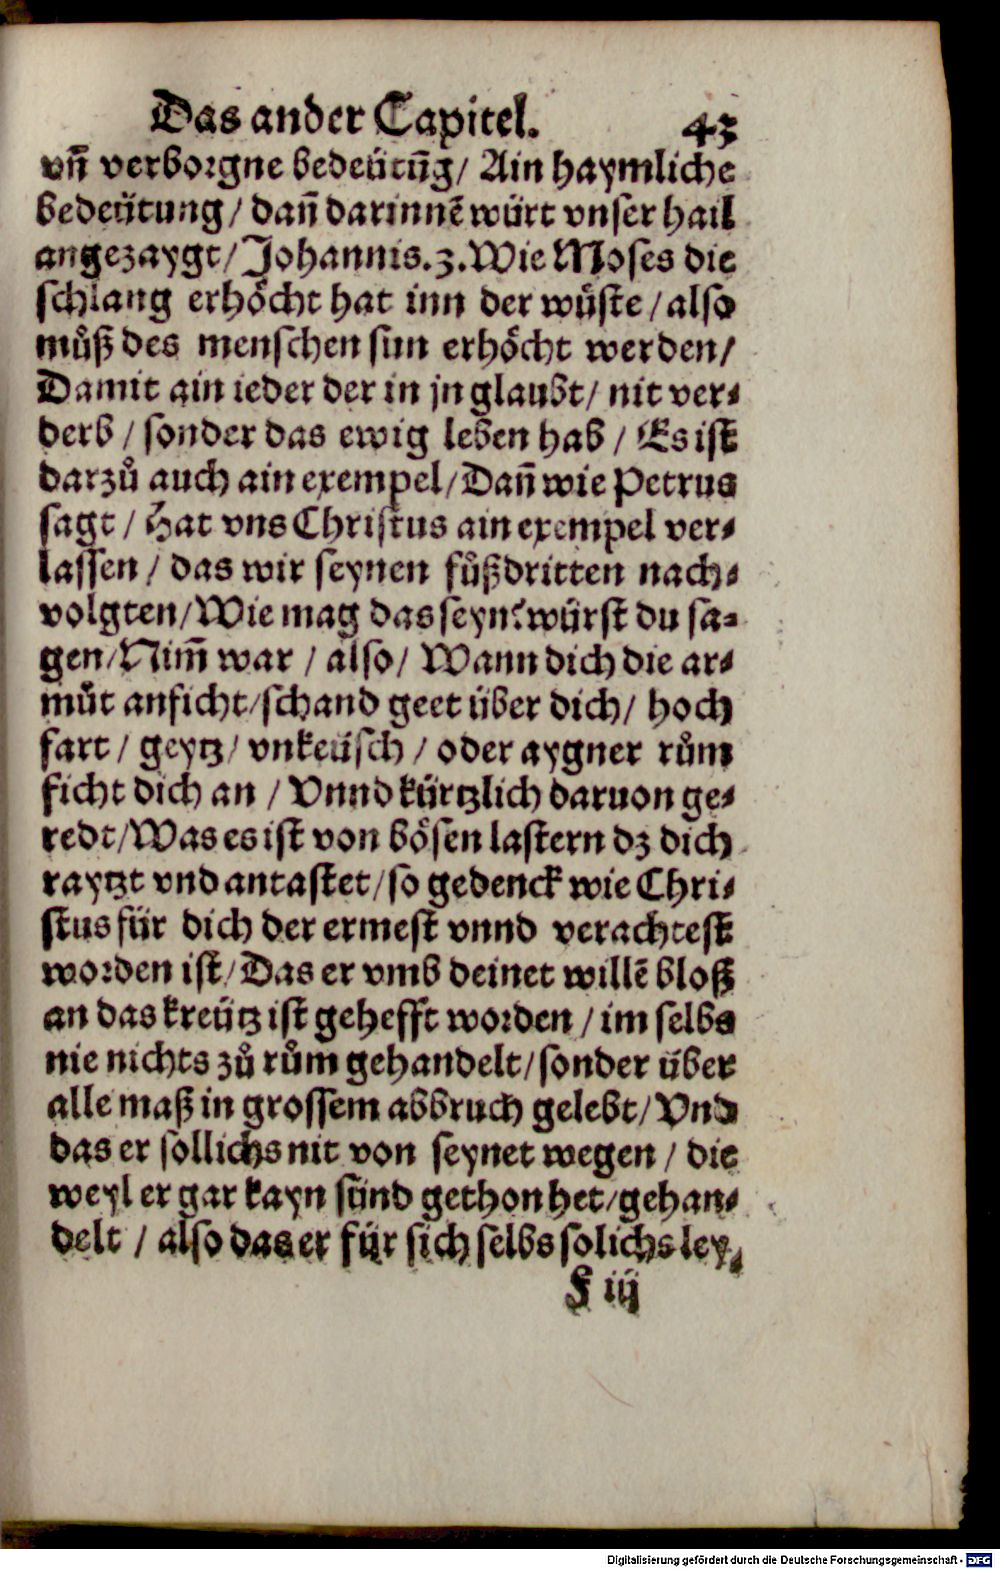 Das ander Capitel. 43
vñ verborgne bedeütũg/ Ain haymliche
bedeütung/ dañ darinnē würt vnser hail
angezaygt/ Johannis.3. Wie Moses die
schlang erhöcht hat inn der wüste/ also
můß des menschen sun erhöcht werden/
Damit ain ieder der in jn glaubt/ nit ver⸗
derb/ sonder das ewig leben hab/ Es ist
darzů auch ain exempel/ Dañ wie Petrus
sagt/ Hat vns Christus ain exempel ver⸗
lassen/ das wir seynen fůßdritten nach⸗
volgten/ Wie mag das seyn? würst du sa⸗
gen/ Nim̃ war/ also/ Wann dich die ar⸗
můt anficht/ schand geet über dich/ hoch
fart/ geytz/ vnkeüsch/ oder aygner rům
ficht dich an/ Vnnd kürtzlich daruon ge⸗
redt/ Was es ist von bösen lastern dz dich
raytzt vnd antastet/ so gedenck wie Chri⸗
stus für dich der ermest vnnd verachtest
worden ist/ Das er vmb deinet willē bloß
an das kreütz ist gehefft worden/ im selbs
nie nichts zů rům gehandelt/ sonder über
alle maß in grossem abbruch gelebt/ Vnd
das er sollichs nit von seynet wegen/ die
weyl er gar kayn sünd gethon het/ gehan⸗
delt/ also das er für sich selbs solichs ley⸗
F iij
Digitalisierung gefördert durch die Deutsche Forschungsgemeinschaft - DFG